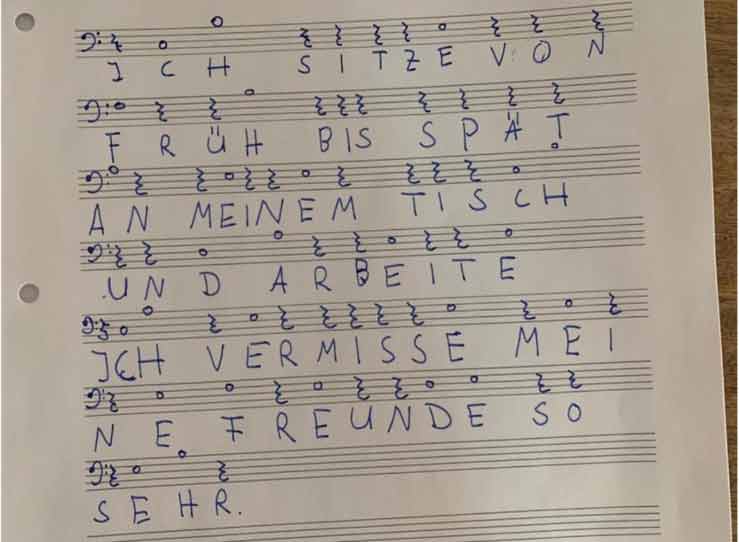 ICH SITZE VON
FRÜH BIS SPÄT
AN MEINEM TISCH
UND ARBEITE
ICH VERMISSE MEI
NE FREUNDE SO
SEHR.